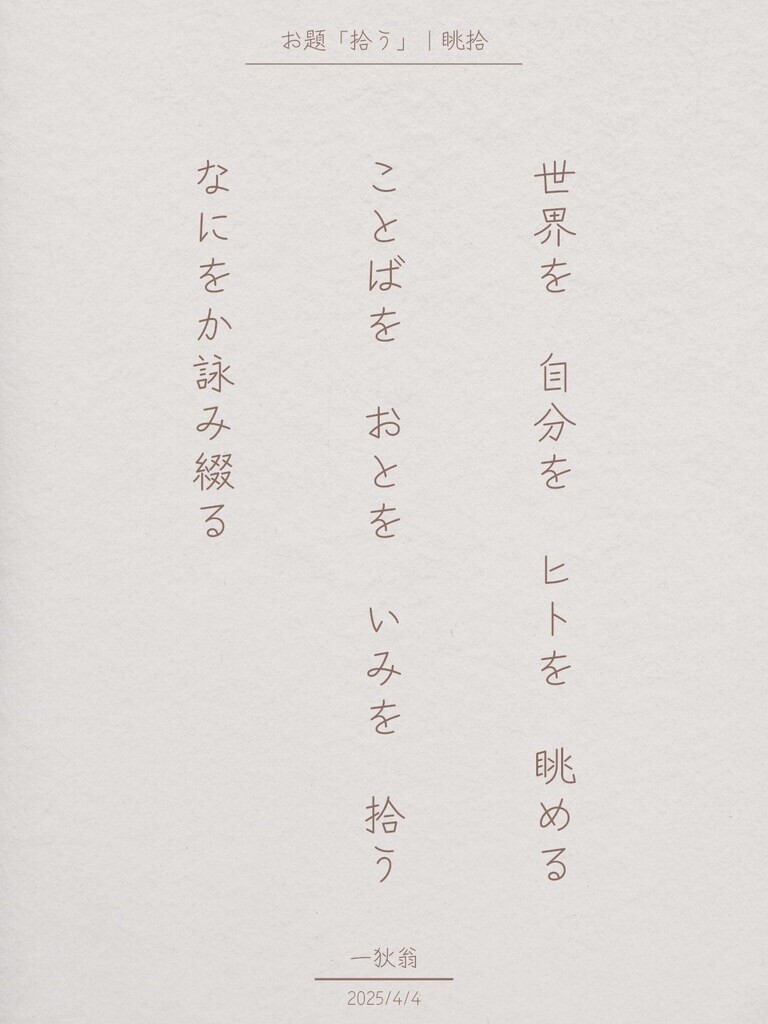 お題「拾う」｜眺拾
世界を　自分を　ヒトを　眺める
ことばを　おとを　いみを　拾う
なにをか詠み綴る
一狄翁
2025/4/4